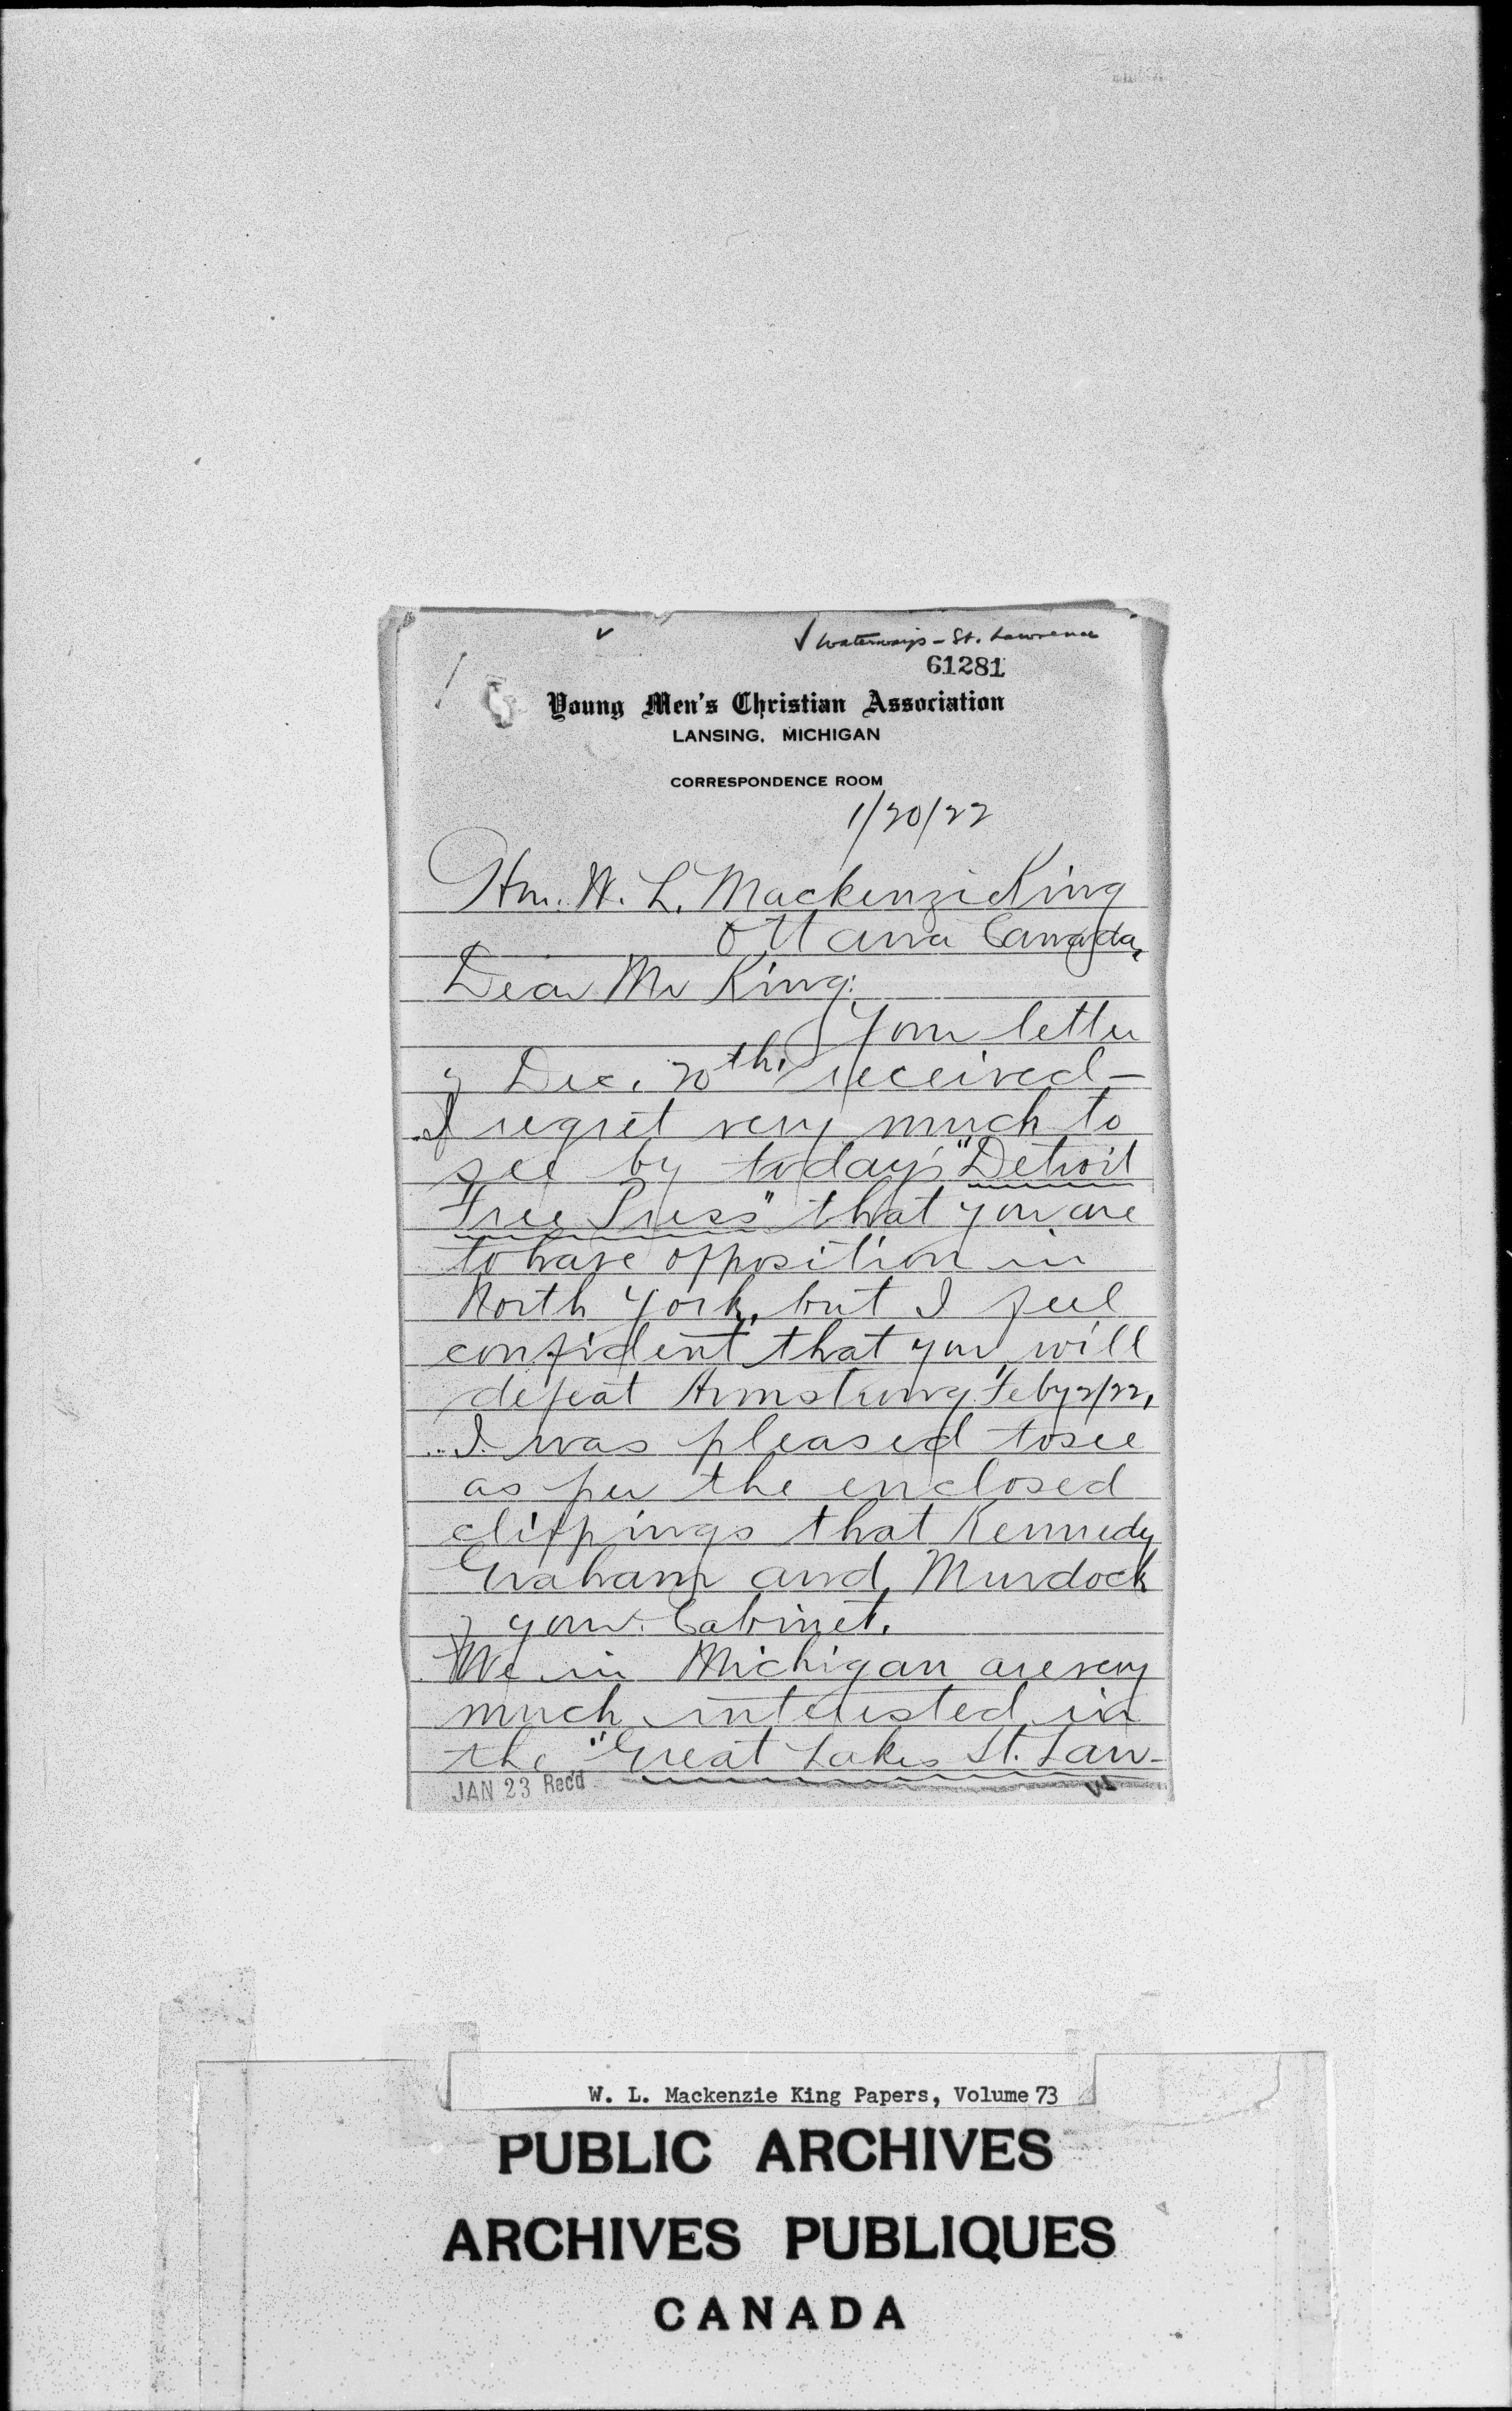 ✓ ✓ Waterways - St. Lawrence
61281
Young Men's Christian Association
LANSING, MICHIGAN
CORRESPONDENCE ROOM
1/20/22
Hon. W. L. Mackenzie King
Ottawa Canada,
Dear Mr King:
Your letter
of Dec. 20th received—
I regret very much to
see by today's "Detroit
Free Press" that you are
to have opposition in
North York, but I feel
confident that you will
defeat Armstrong Feby 2/22,
I was pleased to see
as per the enclosed
clippings that Kennedy
Graham and Murdock
of your Cabinet.
We in Michigan are very
much interested in
the "Great Lakes St. Law-
JAN 23 Rec'd
W. L. Mackenzie King Papers, Volume 73
PUBLIC ARCHIVES
ARCHIVES PUBLIQUES
CANADA